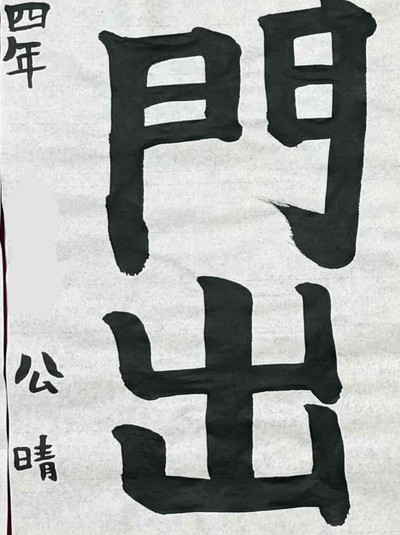 門出
四年
公晴